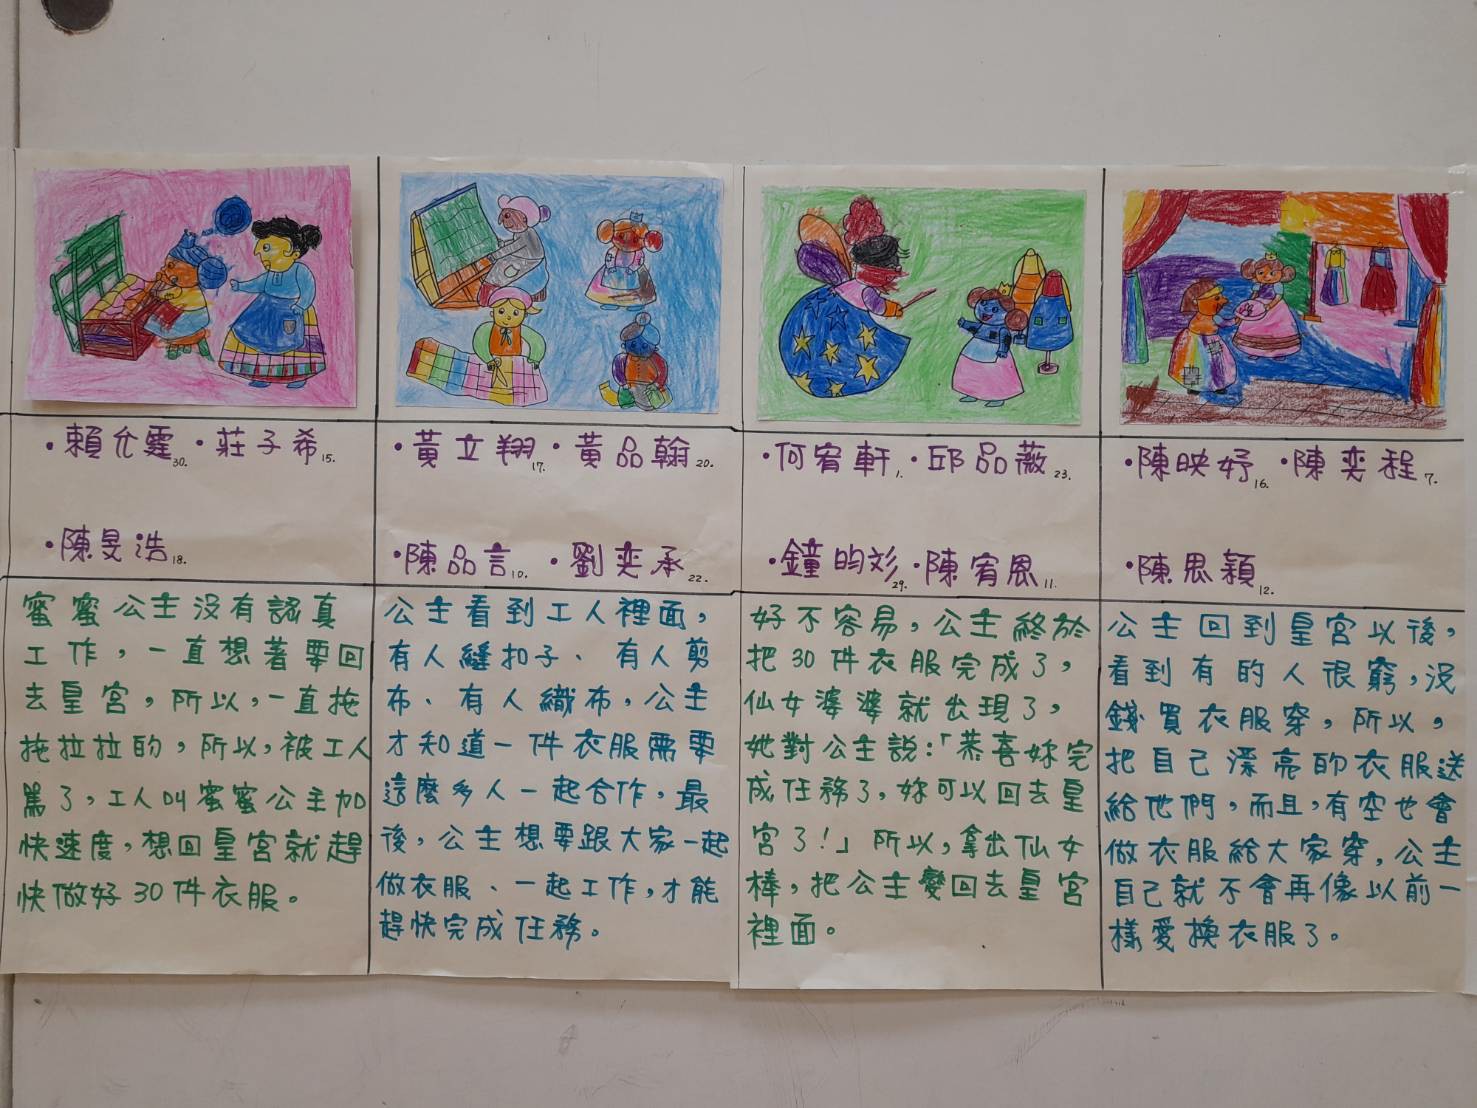 ·賴允霆30. ·莊子希15.
·陳旻浩18.
蜜蜜公主沒有認真
工作，一直想著要回
去皇宮，所以，一直拖
拖拉拉的，所以，被工人
罵了，工人叫蜜蜜公主加
快速度，想回皇宮就趕
快做好30件衣服。
·黃立翔17. ·黃品翰20.
·陳品言10. ·劉奕承22.
公主看到工人裡面，
有人縫扣子、有人剪
布、有人織布，公主
才知道一件衣服需要
這麼多人一起合作，最
後，公主想要跟大家一起
做衣服、一起工作，才能
趕快完成任務。
·何宥軒1. ·邱品薇23.
·鐘昀彣29. ·陳宥恩11.
好不容易，公主終於
把30件衣服完成了，
仙女婆婆就出現了，
她對公主說：「恭喜妳完
成任務了，妳可以回去皇
宮了！」所以，拿出仙女
棒，把公主變回去皇宮
裡面。
·陳映妤16. ·陳奕程7.
·陳思穎12.
公主回到皇宮以後，
看到有的人很窮，沒
錢買衣服穿，所以，
把自己漂亮的衣服送
給他們，而且，有空也會
做衣服給大家穿，公主
自己就不會再像以前一
樣愛換衣服了。